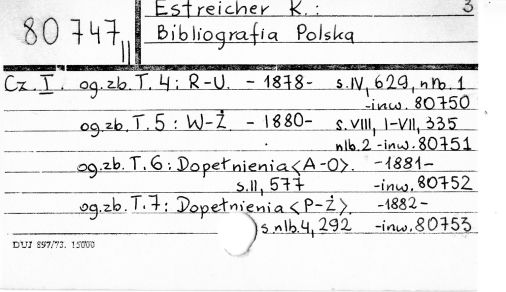 Estreicher K.: 3
80747 II Bibliografia Polska
Cz. I. og.zb. T. 4: R-U. - 1878- s. IV, 629, nlb. 1
-inw. 80750
og.zb. T. 5: W-Ż - 1880- s. VIII, I-VII, 335
nlb. 2 -inw. 80751
og.zb. T. 6: Dopełnienia <A-O>. -1881-
s. II, 577 -inw. 80752
og.zb. T. 7: Dopełnienia <P-Ż>. -1882-
s nlb. 4, 292 -inw. 80753
DUJ 897/73. 15000